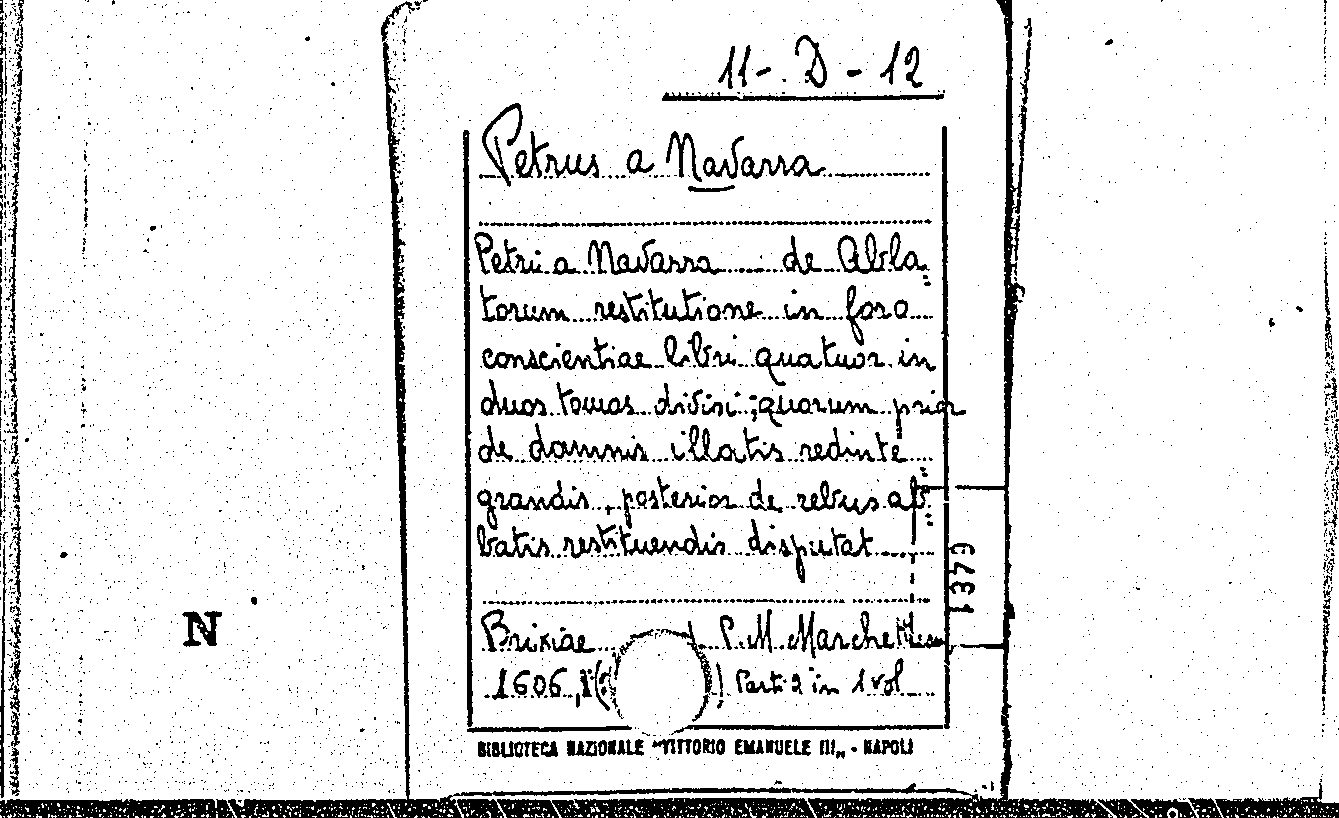 11-. D - 12
Petrus a Navarra
Petri a Navarra de Abla
torum restitutione in foro
conscientiae libri quatuor in
duos tomos divisi; quorum prior
de damnis illatis redinte
grandis, posterior de rebus ab
latis restituendis disputat
Brixiae P. M. Marche
1606, Parti 2 in 1 vol
BIBLIOTECA NAZIONALE "VITTORIO EMANUELE III" - NAPOLI
N